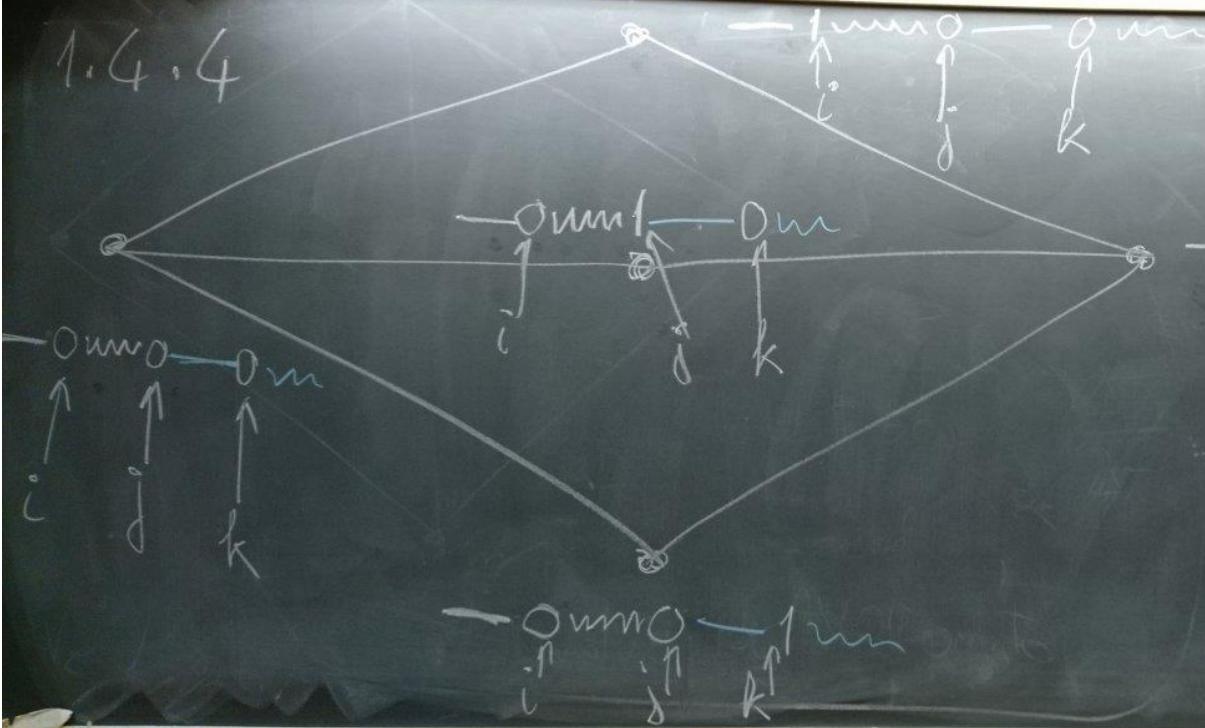 1.4.4
1 0 0
i j k
0 1 0
i j k
0 0 0
i j k
0 0 1
i j k